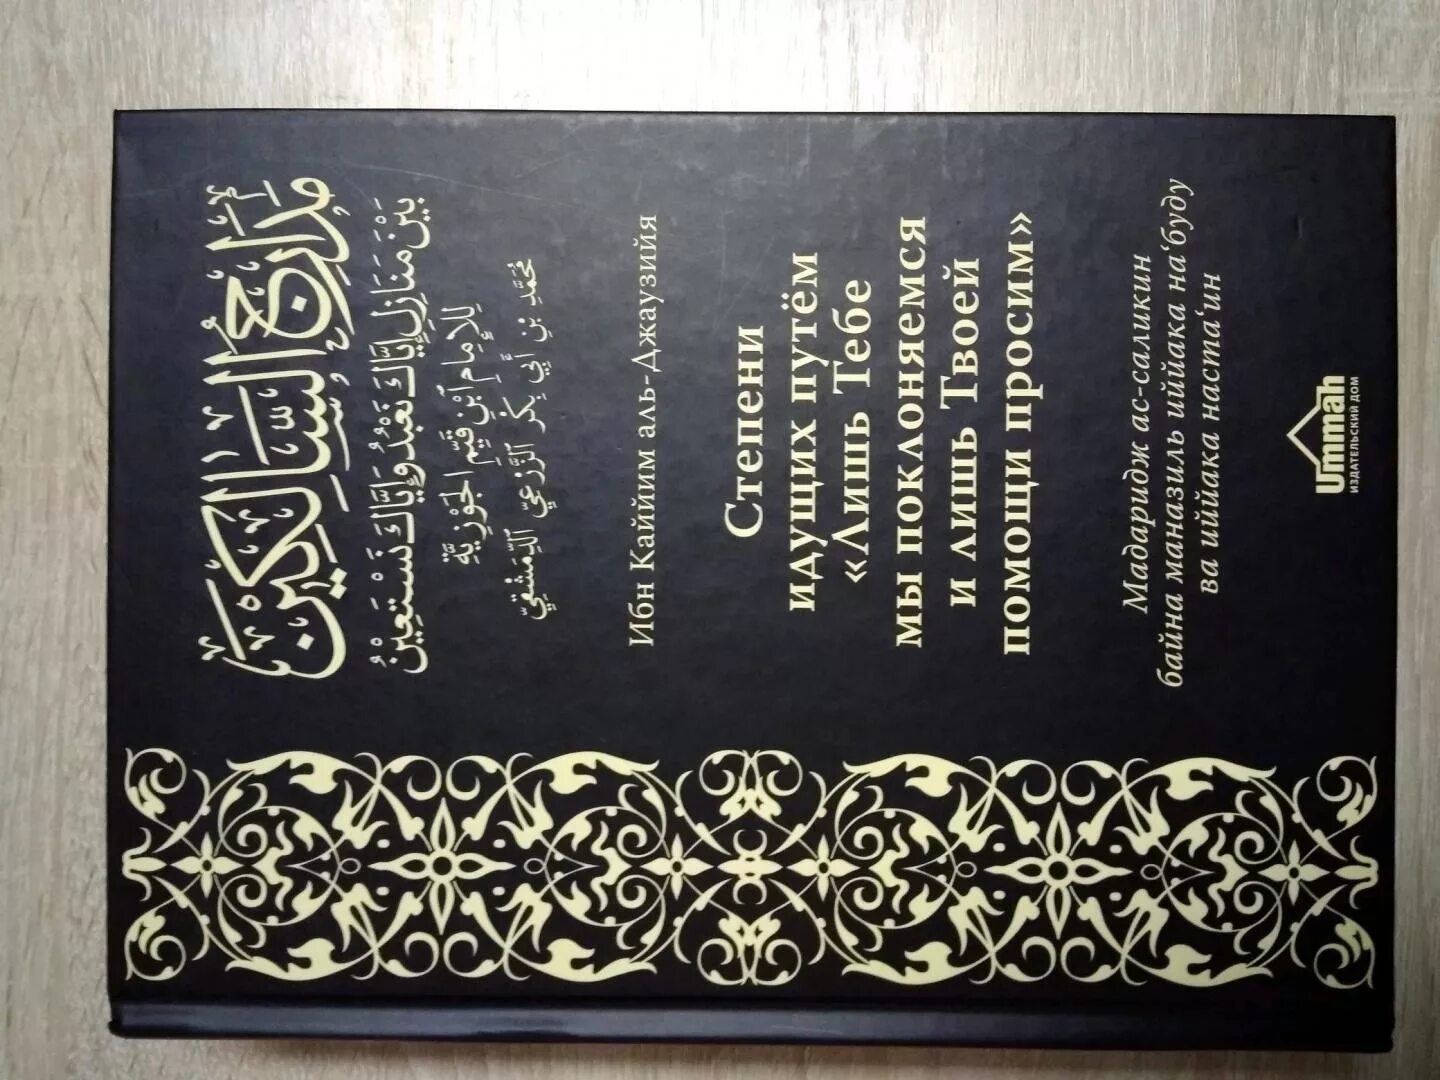 مَدَارِجُ السَّالِكِينَ
بَيْنَ مَنَازِلِ إِيَّاكَ نَعْبُدُ وَإِيَّاكَ نَسْتَعِينُ
لِلْإِمَامِ ابْنِ قَيِّمِ الْجَوْزِيَّةِ
مُحَمَّدِ بْنِ أَبِي بَكْرٍ الزُّرَعِيِّ الدِّمَشْقِيِّ
Ибн Каййим аль-Джаузиййя
Степени
идущих путём
«Лишь Тебе
мы поклоняемся
и лишь Твоей
помощи просим»
Мадаридж ас-саликин
байна маназиль иййака на‘буду
ва иййака наста‘ин
Ummah
ИЗДАТЕЛЬСКИЙ ДОМ